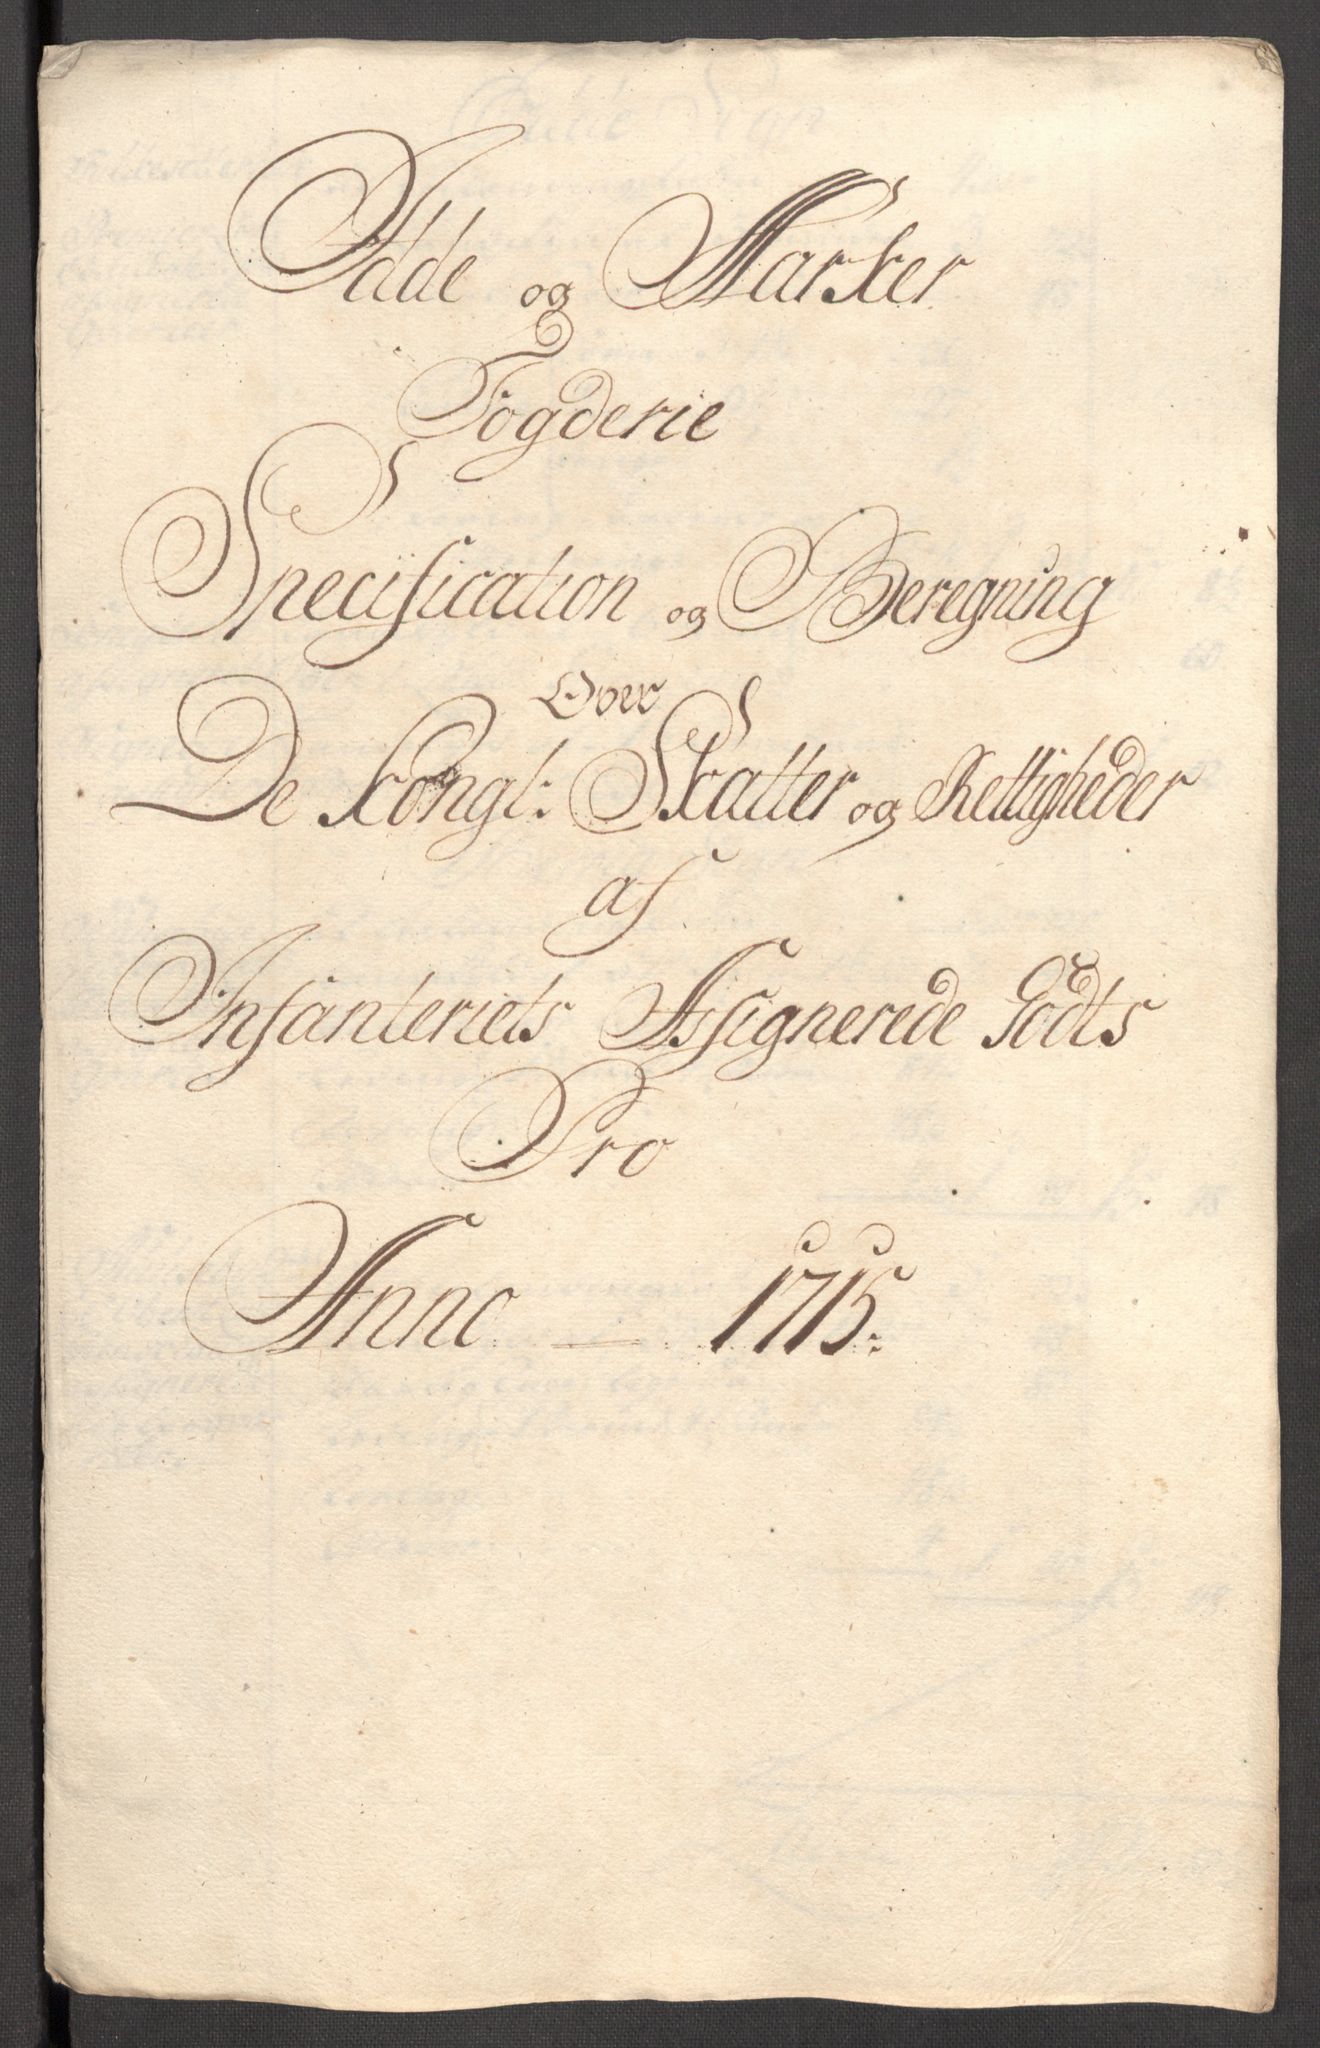 Idde og Marker
Fogderie
Specification og Beregning
Over
De Kongl: Skatter og Rettigheder
af
Infanteriets Assignerede Godts
Pro
Anno — 1715.